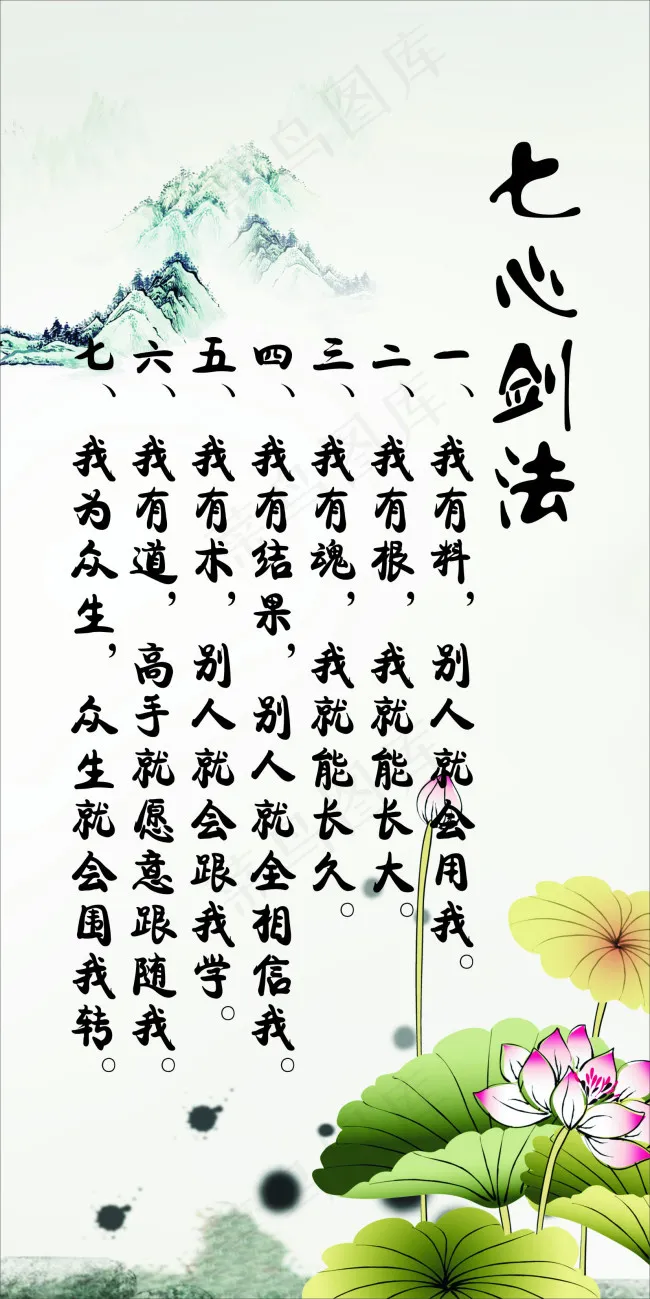 七心剑法
一、我有料，别人就会用我。
二、我有根，我就能长大。
三、我有魂，我就能长久。
四、我有结果，别人就全相信我。
五、我有术，别人就会跟我学。
六、我有道，高手就愿意跟随我。
七、我为众生，众生就会围我转。
菜鸟图库
菜鸟图库
菜鸟图库
菜鸟图库
菜鸟图库